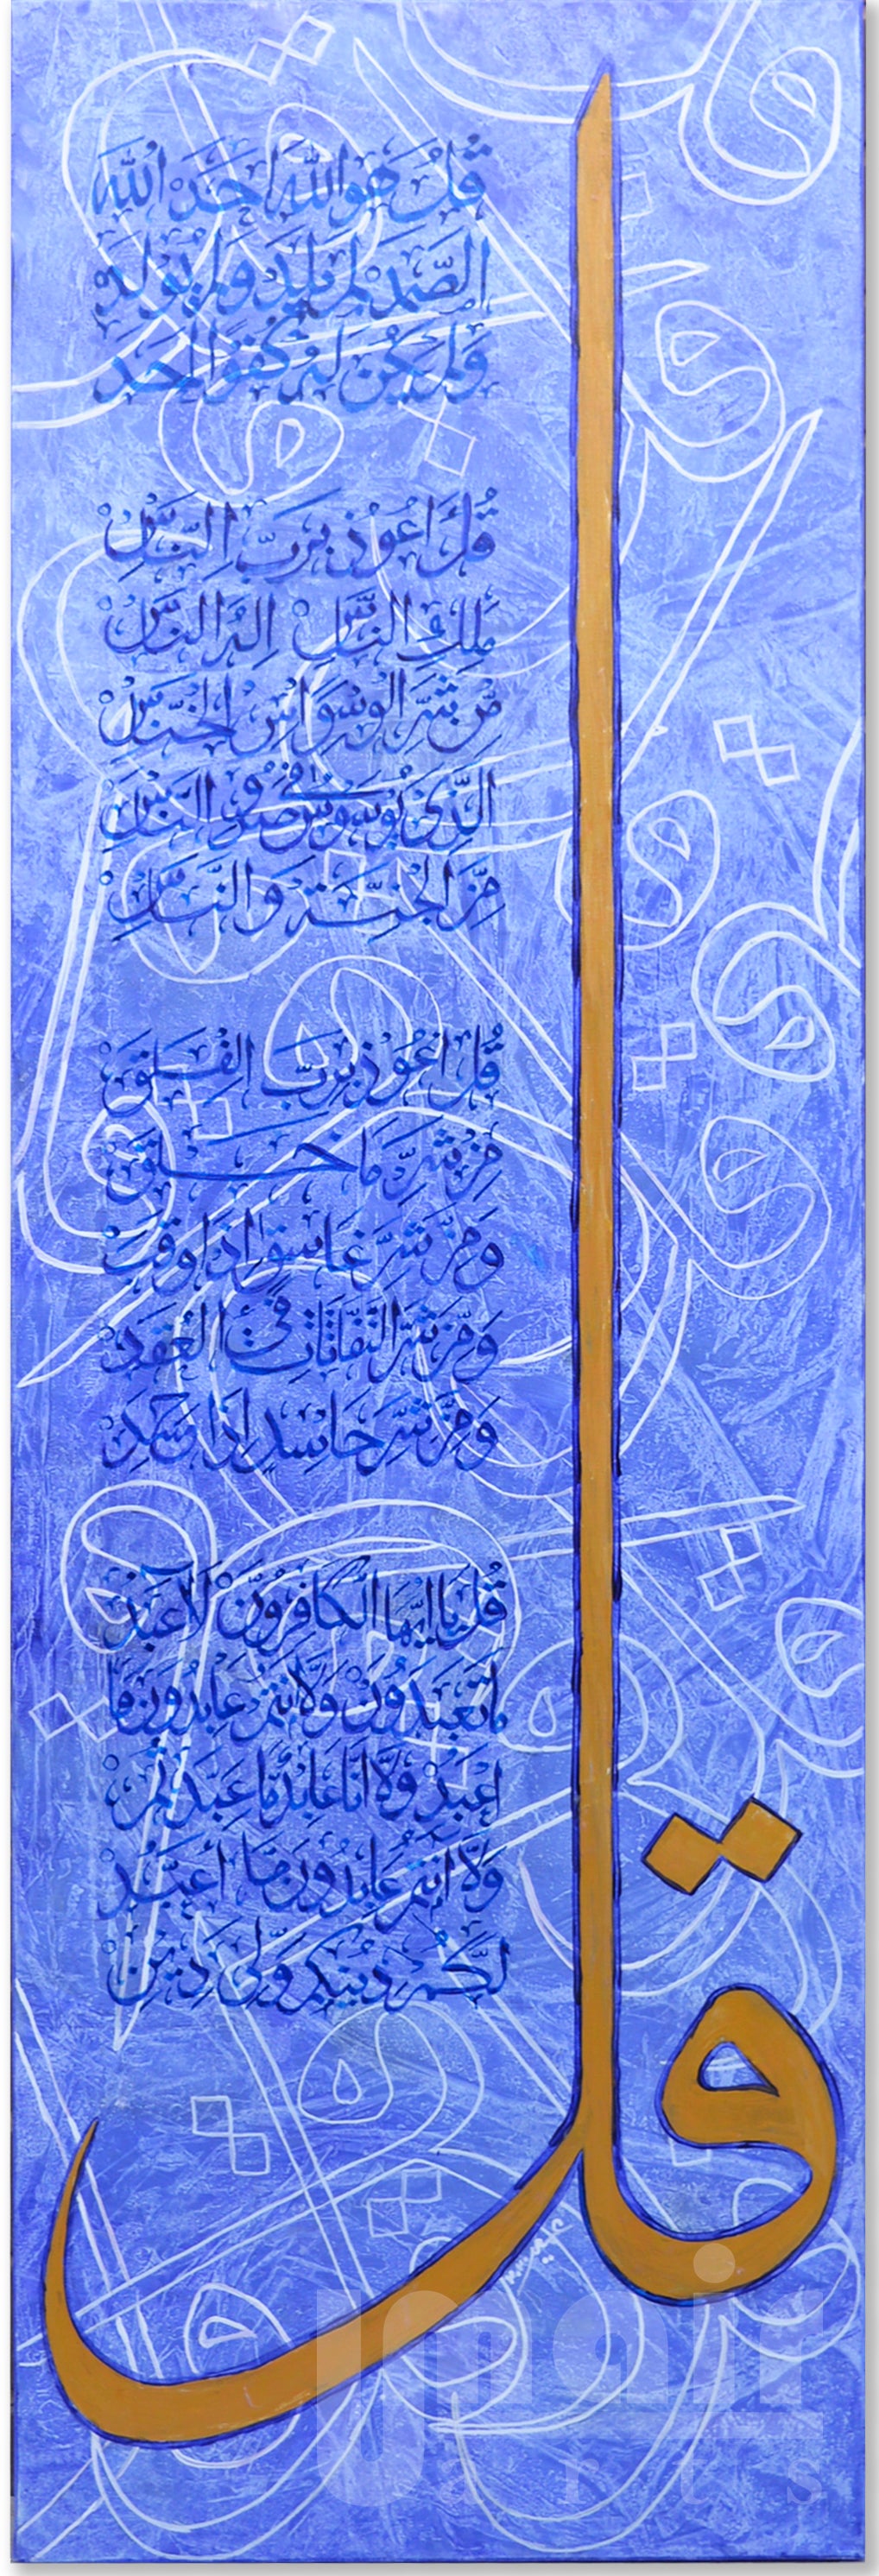 قُلْ هُوَ اللّٰهُ اَحَدٌ اَللّٰهُ
الصَّمَدُ لَمْ يَلِدْ وَلَمْ يُولَدْ
وَلَمْ يَكُنْ لَهُ كُفُوًا اَحَدٌ
قُلْ اَعُوْذُ بِرَبِّ النَّاسِ
مَلِكِ النَّاسِ اِلٰهِ النَّاسِ
مِنْ شَرِّ الْوَسْوَاسِ الْخَنَّاسِ
الَّذِيْ يُوَسْوِسُ فِيْ صُدُوْرِ النَّاسِ
مِنَ الْجِنَّةِ وَالنَّاسِ
قُلْ اَعُوْذُ بِرَبِّ الْفَلَقِ
مِنْ شَرِّ مَا خَلَقَ
وَمِنْ شَرِّ غَاسِقٍ اِذَا وَقَبَ
وَمِنْ شَرِّ النَّفَّاثَاتِ فِي الْعُقَدِ
وَمِنْ شَرِّ حَاسِدٍ اِذَا حَسَدَ
قُلْ يَا اَيُّهَا الْكَافِرُوْنَ لَا اَعْبُدُ
مَا تَعْبُدُوْنَ وَلَا اَنْتُمْ عَابِدُوْنَ مَا
اَعْبُدُ وَلَا اَنَا عَابِدٌ مَا عَبَدْتُمْ
وَلَا اَنْتُمْ عَابِدُوْنَ مَا اَعْبُدُ
لَكُمْ دِيْنُكُمْ وَلِيَ دِيْنِ
قل
unair
arts